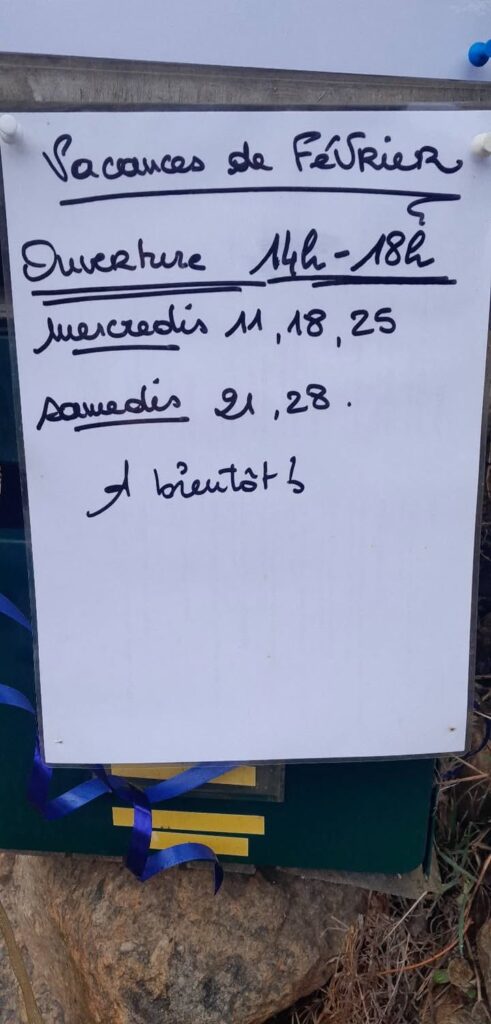 Vacances de FéVRIER
OuVERTuRE 14h - 18h
Mercredis 11, 18, 25
samedis 21, 28.
A bientôt !